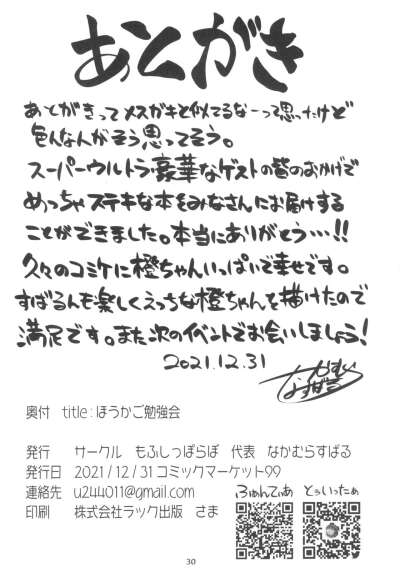 あとがき
あとがきってメスガキと似てるなーって思ったけど
色んな人がそう思ってそう。
スーパーウルトラ豪華なゲストの皆のおかげで
めっちゃステキな本をみなさんにお届けする
ことができました。本当にありがとう…!!
久々のコミケに橙ちゃんいっぱいで幸せです。
すばるんも楽しくえっちな橙ちゃんを描けたので
満足です。また次のイベントでお会いしましょう!
2021.12.31
なかむら
すばる
奥付 title:ほうかご勉強会
発行 サークル もふしっぽらぼ 代表 なかむらすばる
発行日 2021/12/31コミックマーケット99
連絡先 u244011@gmail.com
印刷 株式会社ラック出版 さま
ふぁんてぃあ とぅいったぁ
30